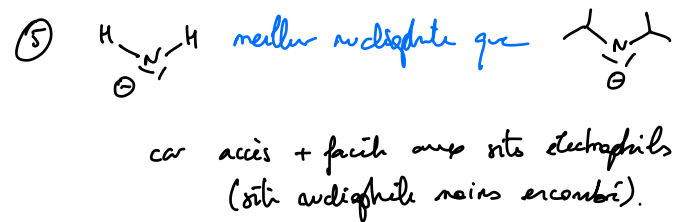 ⑤ H N H ⊖ meilleur nucléophile que N ⊖
car accès + facile aux sites électrophiles
(site nucléophile moins encombré).